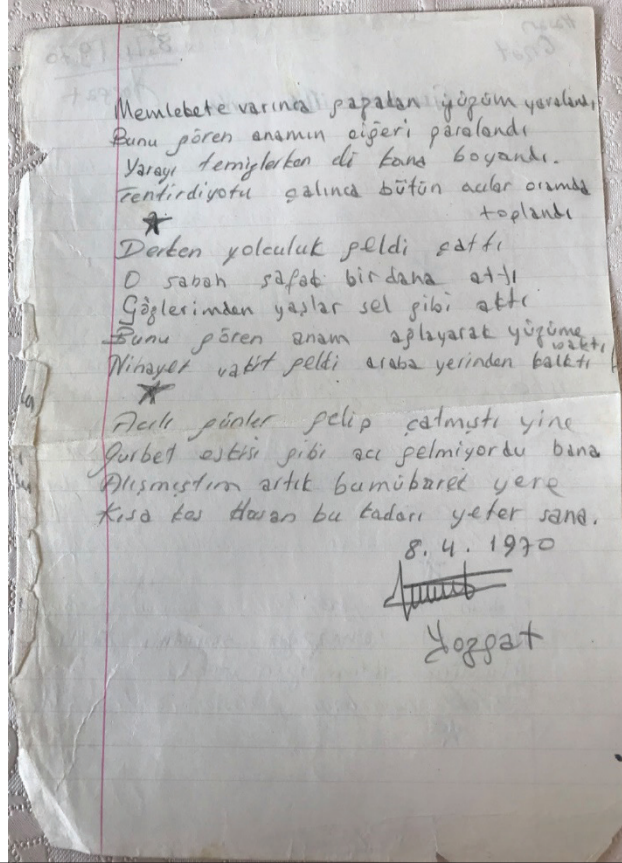 Memlekete varınca papatan yüzüm yaralandı,
Bunu gören anamın ciğeri paralandı
Yarayı temizlerken di kana boyandı.
Tentirdiyotu çalınca bütün acılar oramda
toplandı
Derken yolculuk geldi çattı
O sabah şafak bir daha attı
Gözlerimden yaşlar sel gibi aktı
Bunu gören anam ağlayarak yüzüme
baktı
Nihayet vakit geldi araba yerinden kalktı
Acılı günler gelip çatmıştı yine
Gurbet eskisi gibi acı gelmiyordu bana
Alışmıştım artık bu mübarek yere
Kısa kes Hasan bu kadarı yeter sana.
8. 4. 1970
Yozgat